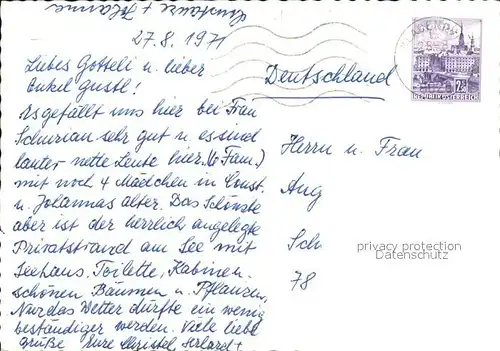 Constanze + Johanna
27.8.1971
Liebes Gotteli u. lieber
Onkel Gustl!
Es gefällt uns hier bei Frau
Schurian sehr gut u. es sind
lauter nette Leute hier. (6 Fam.)
mit noch 4 Mädchen in Const.
u. Johannas alter. Das Schönste
aber ist der herrlich angelegte
Privatstrand am See mit
Seehaus, Toilette, Kabinen,
schönen Bäumen u. Pflanzen,
Nur das Wetter dürfte ein wenig
beständiger werden. Viele liebe
Grüße Eure
Deutschland
Herrn u. Frau
Aug
Sch
78
privacy protection
Datenschutz
REPUBLIK ÖSTERREICH